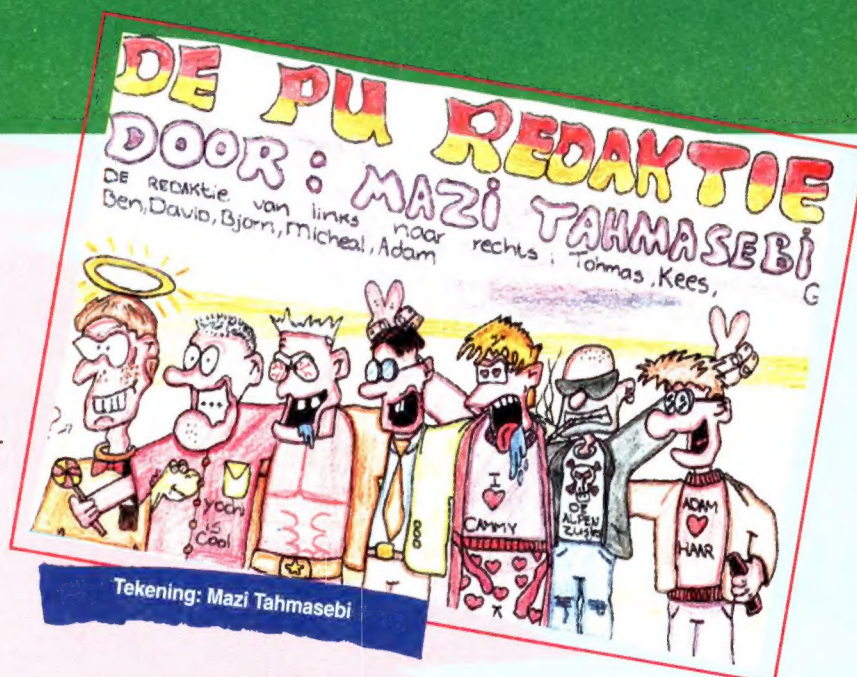 DE PU REDAKTIE
DOOR: MAZI TAHMASEBI
DE REDAKtie van links naar rechts: Tohmas, Kees,
Ben, David, Bjorn, Micheal, Adam
G
yochi
is
Cool
I
CAMMY
DE
ALPEN
ZUSJES
ADAM
HAAR
Tekening: Mazi Tahmasebi